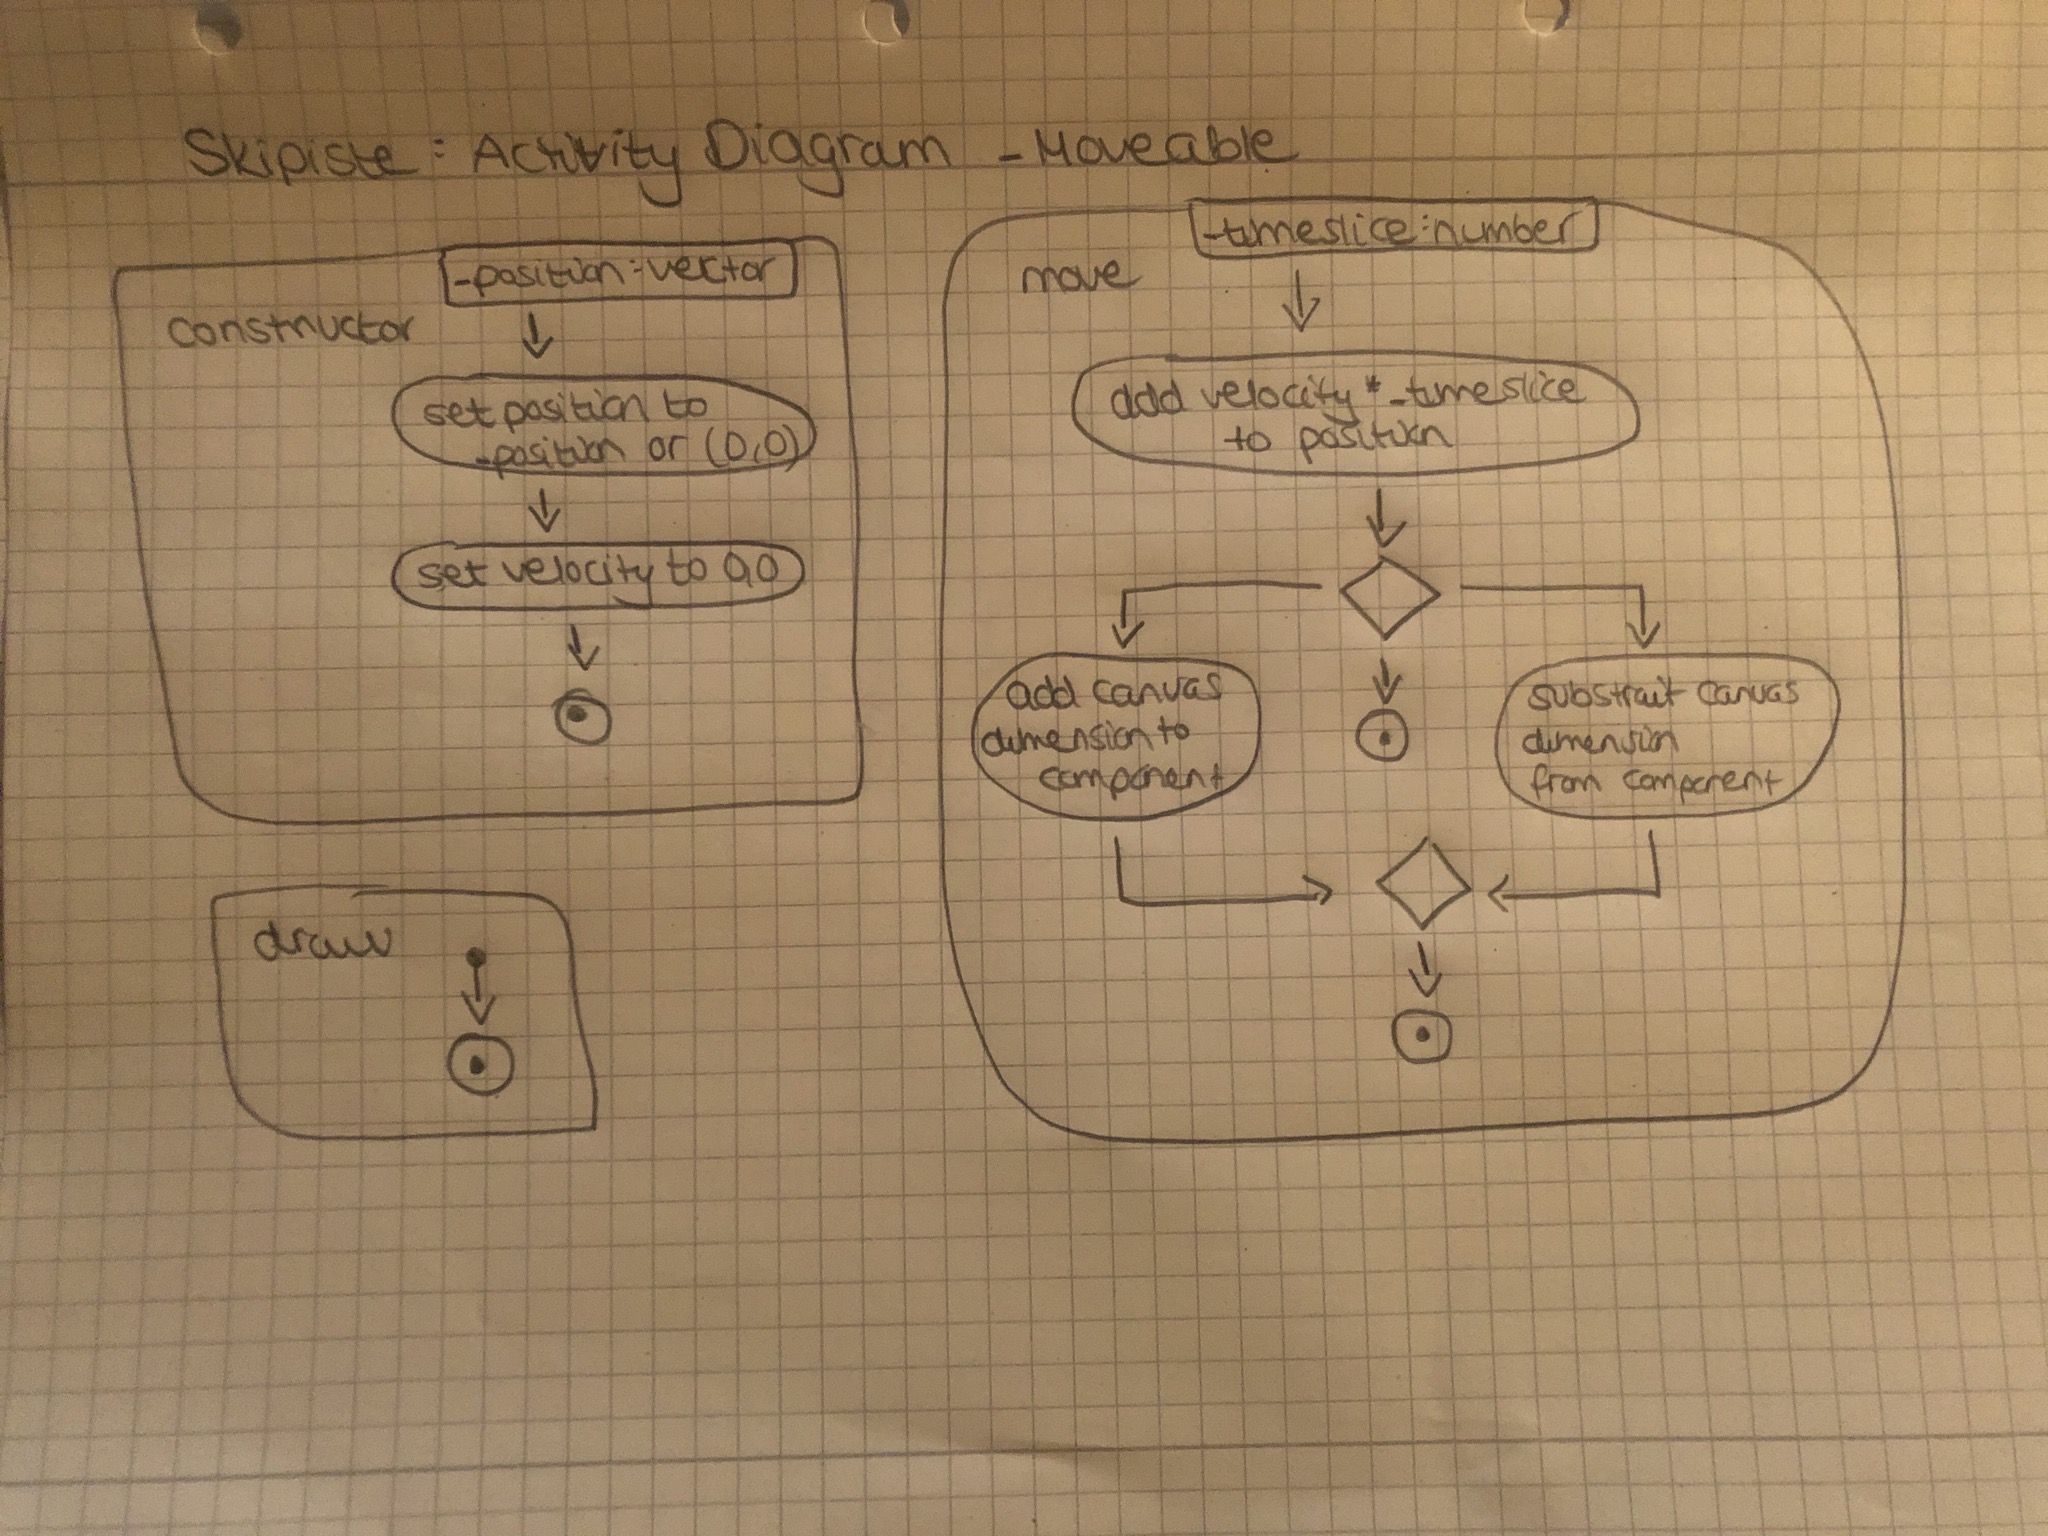 Skipiste: Activity Diagram - Moveable
-position:vector
constructor
set position to
-position or (0,0)
set velocity to 0,0
draw
-timeslice:number
move
add velocity * -timeslice
to position
add canvas
dimension to
component
substrait canvas
dimension
from component